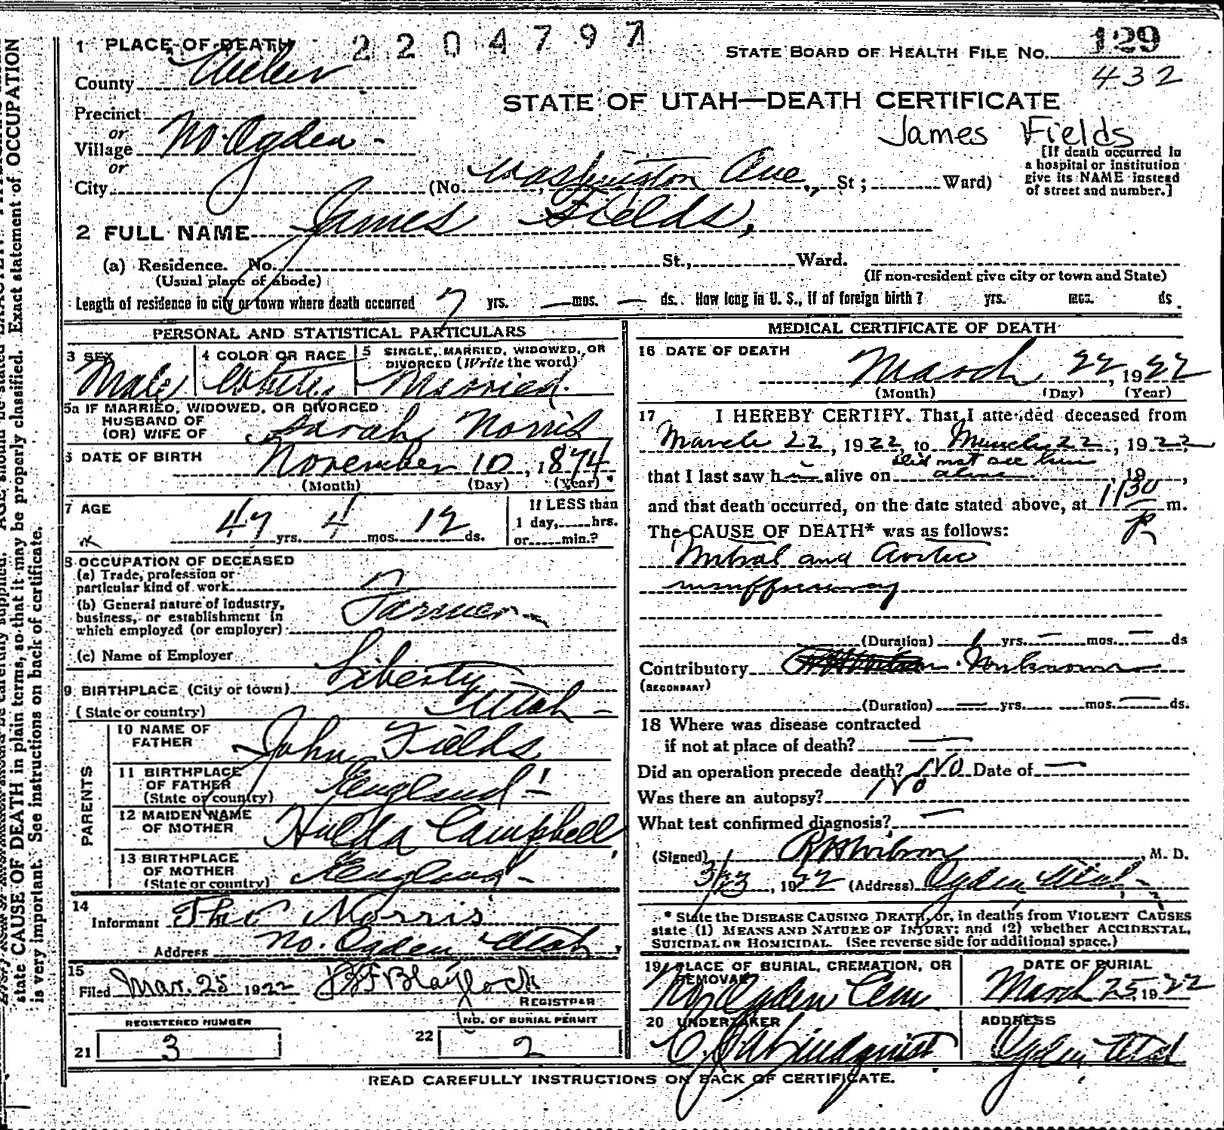 2204797
STATE BOARD OF HEALTH FILE No. 129
432
1 PLACE OF DEATH
County Weber
STATE OF UTAH—DEATH CERTIFICATE
Precinct
or
Village No. Ogden -
James Fields
[If death occurred in a hospital or institution give its NAME instead of street and number.]
or
City (No. Washington Ave., St; Ward)
2 FULL NAME James Fields,
(a) Residence. No. St., Ward.
(Usual place of abode) (If non-resident give city or town and State)
Length of residence in city or town where death occurred 7 yrs. — mos. — ds. How long in U. S., if of foreign birth? yrs. mos. ds.
PERSONAL AND STATISTICAL PARTICULARS
3 SEX Male
4 COLOR OR RACE White
5 SINGLE, MARRIED, WIDOWED, OR DIVORCED (Write the word) Married.
5a IF MARRIED, WIDOWED, OR DIVORCED
HUSBAND OF
(OR) WIFE OF Sarah Norris
6 DATE OF BIRTH November 10, 1874
(Month) (Day) (Year)
7 AGE 47 yrs. 4 mos. 12 ds.
If LESS than
1 day, hrs.
or min.?
8 OCCUPATION OF DECEASED
(a) Trade, profession or
particular kind of work
(b) General nature of industry,
business, or establishment in
which employed (or employer) Farmer -
(c) Name of Employer
9 BIRTHPLACE (City or town) Liberty
(State or country) Utah -
PARENTS
10 NAME OF
FATHER John Fields
11 BIRTHPLACE
OF FATHER
(State or country) England
12 MAIDEN NAME
OF MOTHER Hulda Campbell
13 BIRTHPLACE
OF MOTHER
(State or country) England -
14
Informant Tho Norris
Address No. Ogden Utah
15
Filed Mar. 25 1922 Blaylock
REGISTRAR
REGISTERED NUMBER
21 3
NO. OF BURIAL PERMIT
22 2
MEDICAL CERTIFICATE OF DEATH
16 DATE OF DEATH
March 22, 1922
(Month) (Day) (Year)
17 I HEREBY CERTIFY, That I attended deceased from
March 22, 1922, to March 22, 1922
did not see him
that I last saw him alive on alive 19 ,
and that death occurred, on the date stated above, at 1:30 P m.
The CAUSE OF DEATH* was as follows:
Mitral and Aortic
insufficiency
(Duration) 1 yrs. — mos. — ds
Contributory Unknown
(SECONDARY)
(Duration) — yrs. mos. — ds.
18 Where was disease contracted
if not at place of death? —
Did an operation precede death? No Date of —
Was there an autopsy? No
What test confirmed diagnosis? —
(Signed) Wilson M. D.
3/23, 1922 (Address) Ogden Utah -
* State the DISEASE CAUSING DEATH, or, in deaths from VIOLENT CAUSES
state (1) MEANS AND NATURE OF INJURY; and (2) whether ACCIDENTAL,
SUICIDAL OR HOMICIDAL. (See reverse side for additional space.)
19 PLACE OF BURIAL, CREMATION, OR REMOVAL
Ogden Cem
DATE OF BURIAL
March 25, 1922
20 UNDERTAKER
Lindquist
ADDRESS
Ogden, Utah
READ CAREFULLY INSTRUCTIONS ON BACK OF CERTIFICATE.
state CAUSE OF DEATH in plain terms, so that it may be properly classified. Exact statement of OCCUPATION
is very important. See instructions on back of certificate.